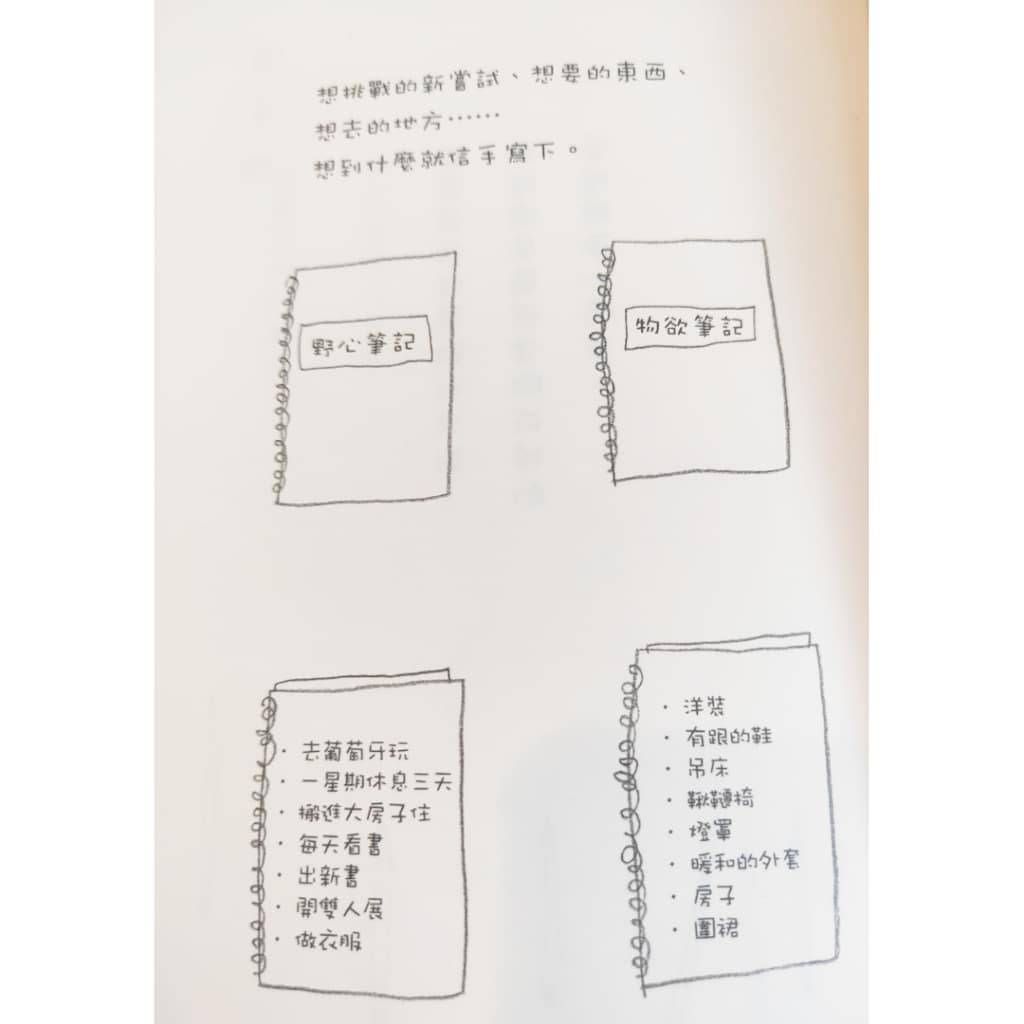 想挑戰的新嘗試、想要的東西、
想去的地方……
想到什麼就信手寫下。
野心筆記
物欲筆記
・去葡萄牙玩
・一星期休息三天
・搬進大房子住
・每天看書
・出新書
・開雙人展
・做衣服
・洋裝
・有跟的鞋
・吊床
・鞦韆椅
・燈罩
・暖和的外套
・房子
・圍裙